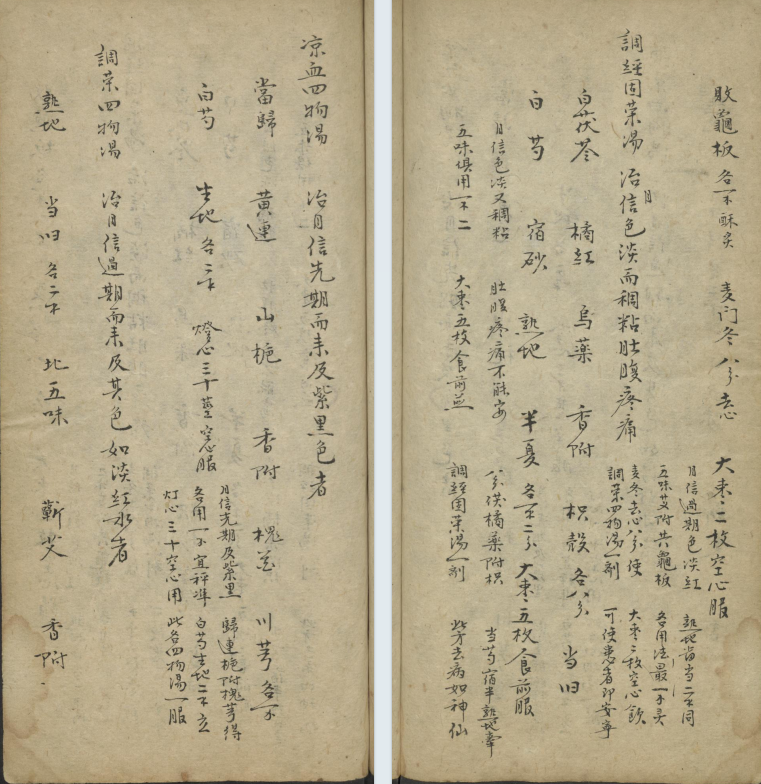 凉血四物湯 治月信先期而来及紫黑色者
當歸 黄連 山梔 香附 槐花 川芎 各一錢
白芍 生地 各二錢 燈心三十莖 空心服
月信先期及紫黑 歸連梔附槐芎得
各用一錢宜秤準 白芍生地二錢立
灯心三十空心用 此名四物湯一服
調荣四物湯 治月信過期而来及其色如淡紅水者
熟地 当归 各二錢 北五味 蘄艾 香附
敗龜板 各一錢酥炙 麦门冬八分去心 大棗二枚空心服
月信過期色淡紅 熟地當当二錢同
五味艾附共龜板 各用法最一錢炙
麦冬去心八分使 大棗二枚空心飲
調荣四物湯一剤 可使患者即安寧
調經固荣湯 治月信色淡而稠粘肚腹疼痛
白茯苓 橘紅 烏薬 香附 枳殼 各八分 当归
白芍 宿砂 熟地 半夏 各一錢二分 大棗五枚食前服
月信色淡又稠粘 肚腹疼痛不能安 八分茯橘薬附枳 当芍宿半熟地牽
五味俱用一錢二 大棗五枚食前並 調經固荣湯一剤 去病如神仙